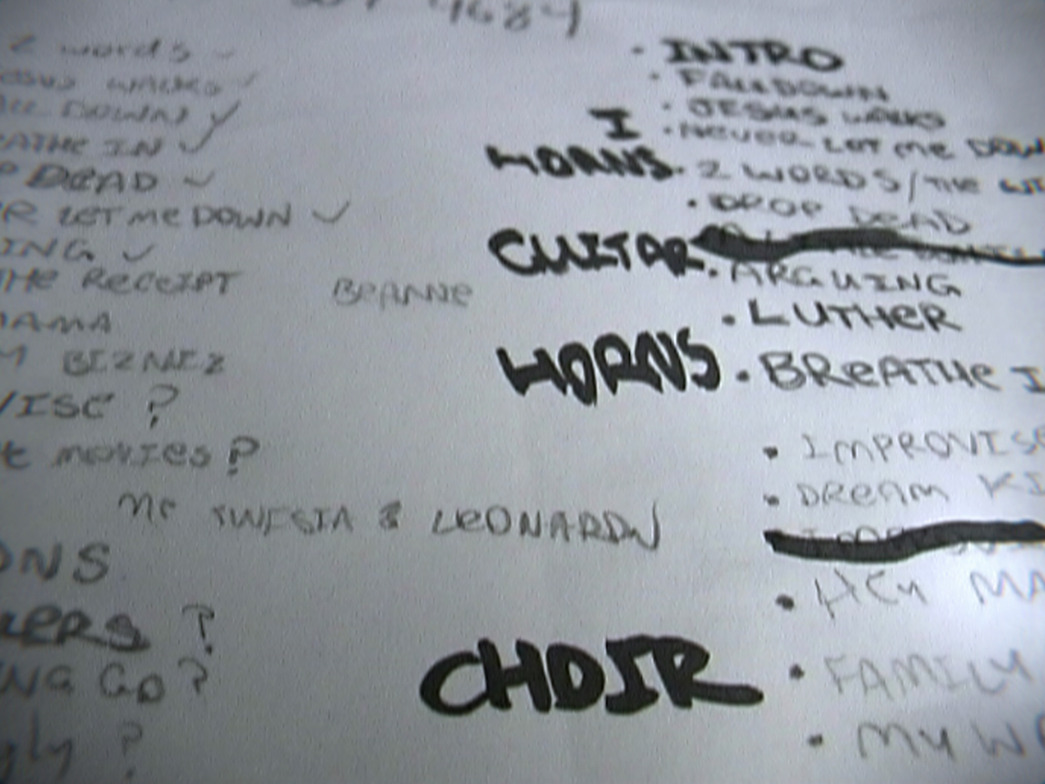 4684
2 words
WALKS
DOWN
ATHE IN
DEAD
R LET ME DOWN
ING
THE RECEIPT
BEANNE
MAMA
M BIZNEZ
VISE ?
movies?
ME SWISTA & LEONARDN
ONS
LERS ?
NG GO ?
gly ?
• INTRO
• FALLDOWN
• JESUS WALKS
I
• NEVER LET ME DOWN
HORNS
• 2 WORDS/THE
• DROP DEAD
GUITAR
• ARGUING
• LUTHER
HORNS
• BREATHE I
• IMPROVISE
• DREAM KI
• HEY MA
CHOIR
• FAMILY
• MY WA